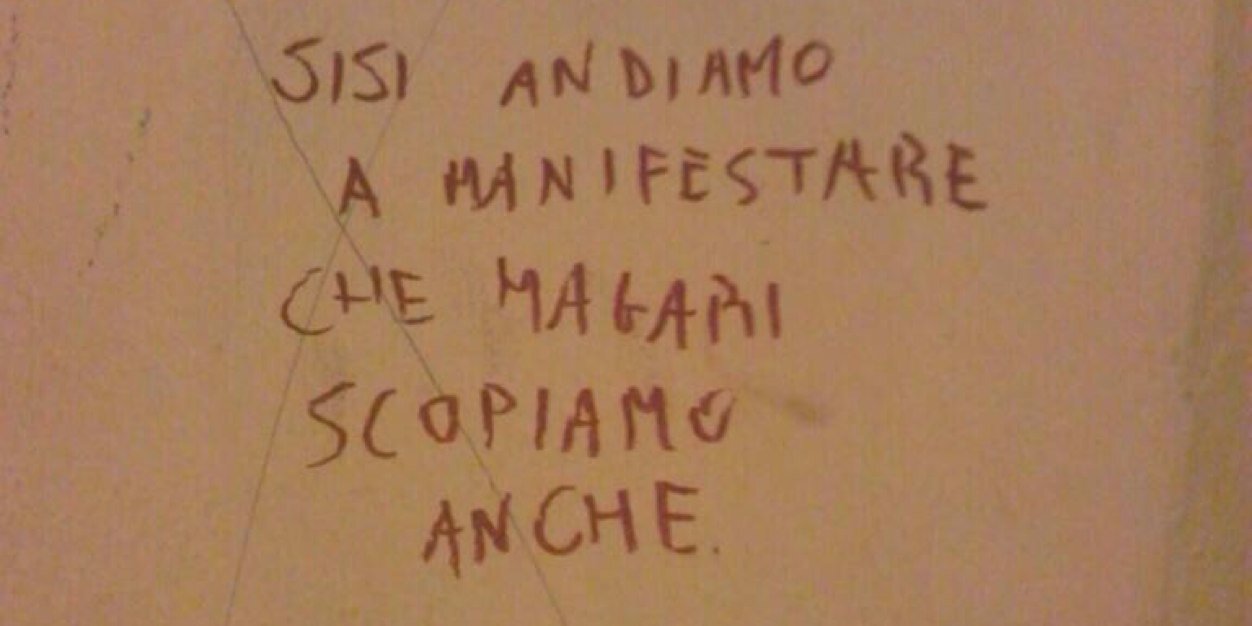 SISI ANDIAMO
A MANIFESTARE
CHE MAGARI
SCOPIAMO
ANCHE.